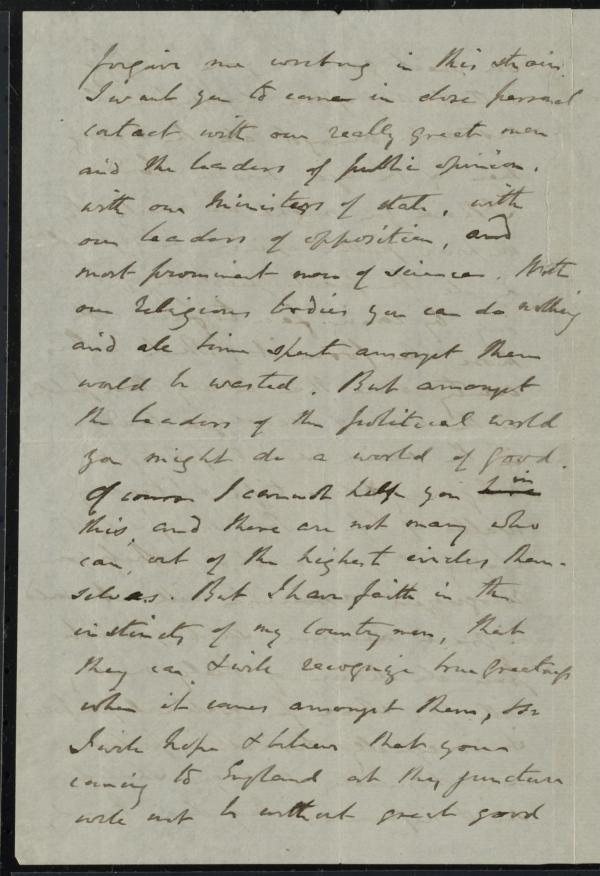 forgive me writing in this strain.
I want you to come in close personal
contact with our really great men
and the leaders of public opinion.
with our Ministers of state, with
our leaders of opposition, and
most prominent men of science. With
our religious bodies you can do nothing
and all time spent amongst them
would be wasted. But amongst
the leaders of the political world
you might do a world of good.
Of course I cannot help you in
this, and there are not many who
can, out of the highest circles them-
selves. But I have faith in the
instincts of my countrymen, that
they can & will recognize true greatness
when it comes amongst them, so
I will hope & believe that your
coming to England at this juncture
will not be without great good